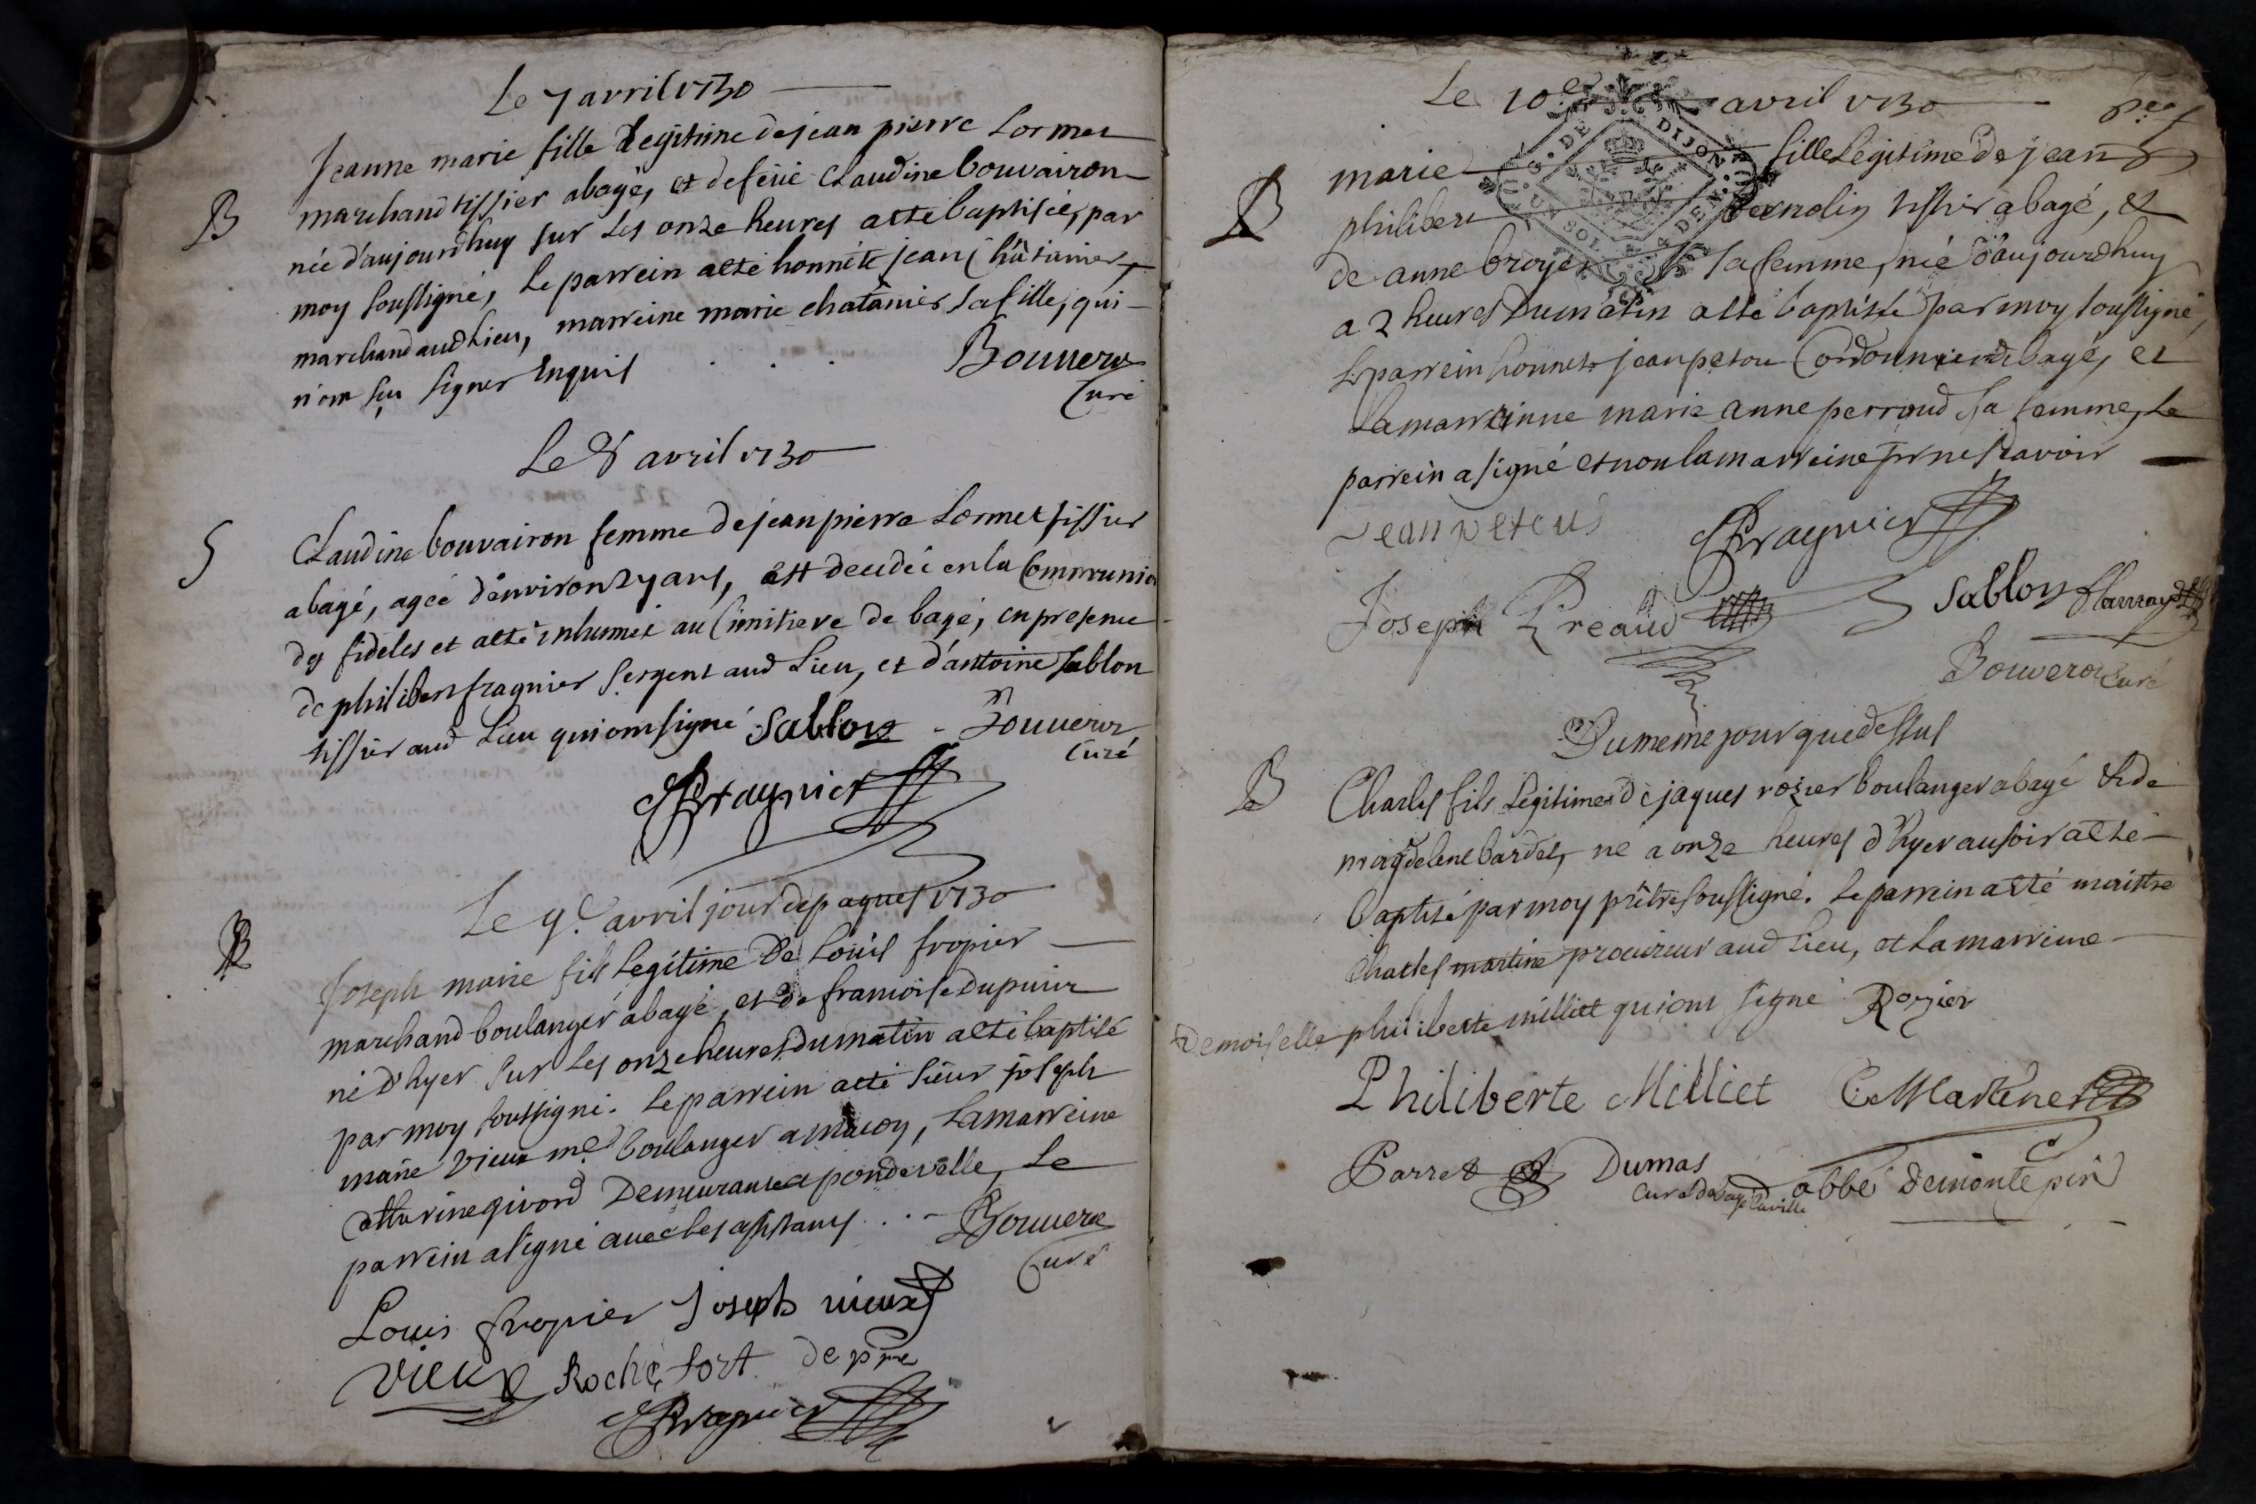 Le 7 avril 1730
Jeanne marie fille Legitime de jean pierre Lormet
B
marchand tissier a bagé, et defeüe claudine bouvairon
née d'aujourdhuy sur les onze heures a etté baptisée, par
moy soussigné, Le parrein a eté honnête jean Châtanier
marchand aud Lieu, marreine marie chatanier sa fille, qui
n'ont sçu signer Enquis . . . Bouveroz
Curé
Le 8 avril 1730
S
Claudine bouvairon femme de jean pierre Lormet tissier
a bagé, agée d'environ 27 ans, est decedée en la Communion
des fideles et a eté inhumée au Cimitiere de bagé, en presence
de philibert fragnier sergent aud Lieu, et d'antoine sablon
tissier aud Lieu qui ont signé Sablon Bouveroz
Curé
Fragnier
Le 9e avril jour de paques 1730
B
Joseph marie fils Legitime de Loüis fropier
marchand boulanger a bagé, et de francoise Dupuis
né d'hyer sur les onze heures du matin a eté baptisé
par moy soussigné. Le parrein a eté sieur joseph
marie vieux md boulanger a macon, La marreine
givord Demeurante a pondevelle, Le
parrein a signé avec les assistans . . . Bouveroz
Curé
Louis fropier Joseph vieux
vieux Rochefort depre
Fragnier
Le 10e avril 1730
marie fille Legitime de jean
B
philibert tissier a bagé, et
de anne broyer sa femme, née d'aujourdhuy
a 2 heures du matin a eté baptisée par moy soussigné,
Le parrein honnete jean petou Cordonnier de bagé, et
La marreinne marie anne perroud sa femme, Le
parrein a signé et non la marreine pr ne scavoir
Jean Fragnier
Joseph Preaud Sablon
Bouveroz Curé
Du meme jour que dessus
B
Charles fils Legitime de jaques rozier boulanger a bagé & de
magdelene bardet, né a onze heures d'hyer au soir a eté
baptisé par moy prêtre soussigné. Le parrein a eté maistre
Charles martine procureur aud Lieu, et La marreine
Demoiselle philiberte milliet qui ont signé Rozier
Philiberte Milliet C Martine
Parret Dumas abbé demontepin
Curé de bagé la ville